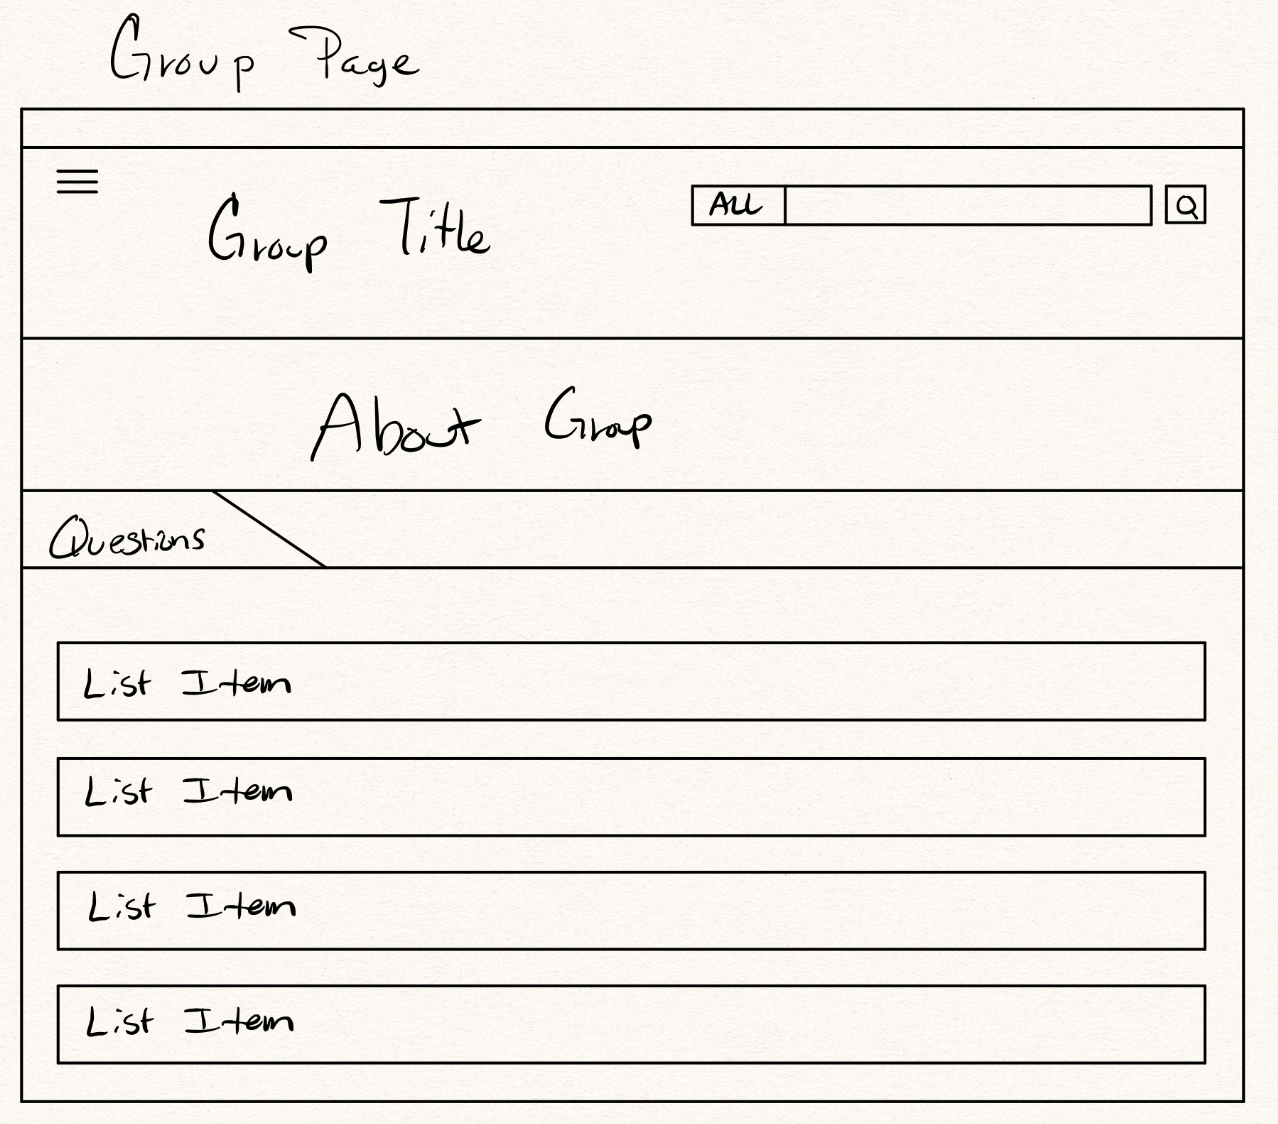 Group Page
ALL
Group Title
About Group
Questions
List Item
List Item
List Item
List Item